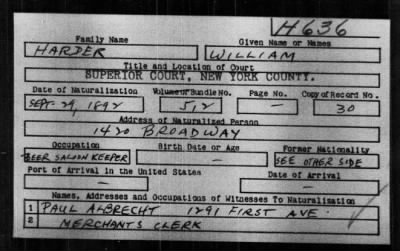 H636
Family Name Given Name or Names
HARDER WILLIAM
Title and Location of Court
SUPERIOR COURT, NEW YORK COUNTY.
Date of Naturalization Volume or Bundle No. Page No. Copy of Record No.
SEPT. 29, 1892 512 — 30
Address of Naturalized Person
1420 BROADWAY
Occupation Birth Date or Age Former Nationality
BEER SALOON KEEPER — SEE OTHER SIDE
Port of Arrival in the United States Date of Arrival
— —
Names, Addresses and Occupations of Witnesses To Naturalization
1 PAUL ALBRECHT 1291 FIRST AVE.
2 MERCHANTS CLERK